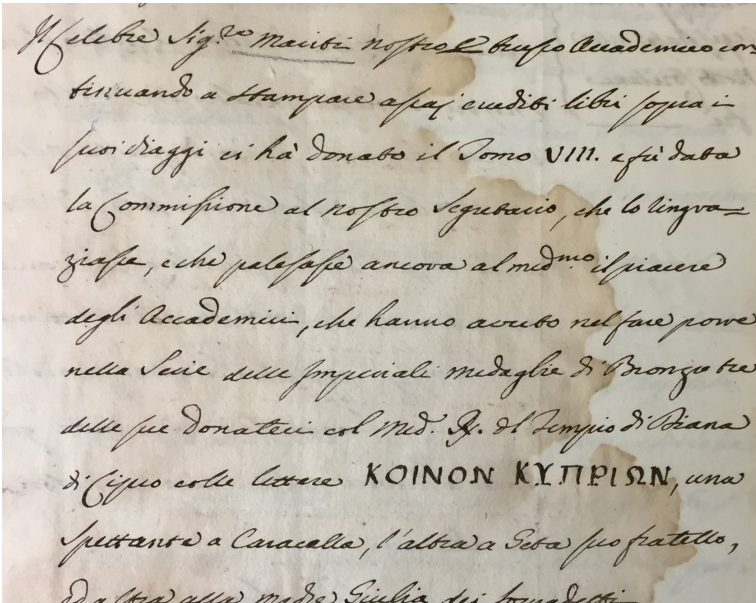 Il Celebre Sig.re Mariti nostro e Accademico con
tinuando a stampare assaj eruditi libri sopra i
suoi viaggi ci hà donato il Tomo VIII. e fù data
la Commissione al nostro Segretario, che lo ringra=
ziasse, e che palesasse ancora al med.mo il piacere
degli Accademici, che hanno avuto nel fare porre
nella Serie delle Imperiali medaglie di Bronzo tre
delle sue donateci col Med. R. del Tempio di Diana
di Cipro colle lettere ΚΟΙΝΟΝ ΚΥΠΡΙΩΝ, una
spettante a Caracalla, l'altra a Geta suo fratello,
ed altra alla madre Giulia dei